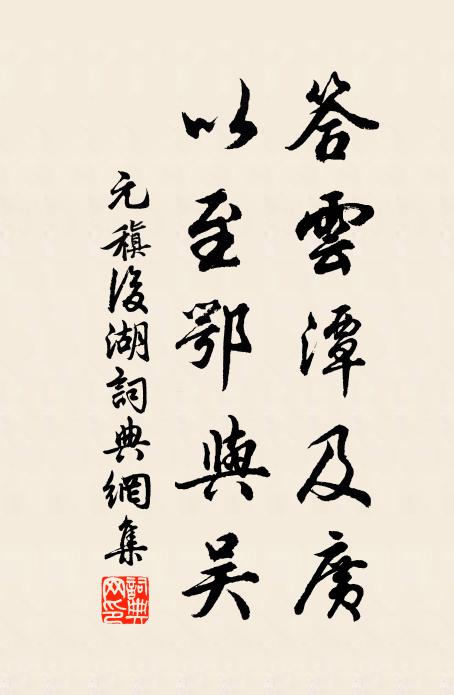 答雲潭及廣
以至鄂與吴
元稹後湖詞典網集
詞典网印